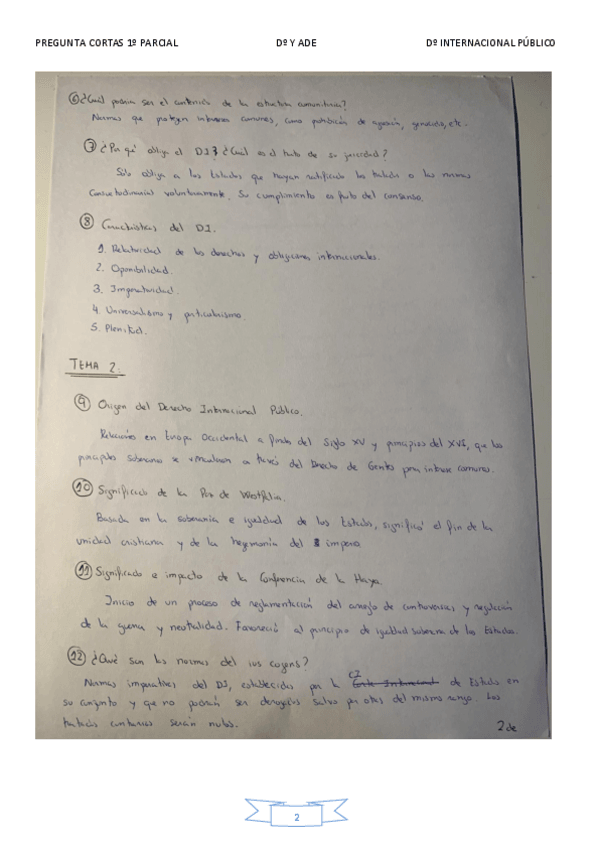 PREGUNTA CORTAS 1º PARCIAL Dº Y ADE Dº INTERNACIONAL PÚBLICO
⑥ ¿Cuál podría ser el contenido de la estructura comunitaria?
Normas que protejen intereses comunes, como prohibición de agresión, genocidio, etc.
⑦ ¿Por qué obliga el D.I.? ¿Cuál es el fruto de su juricidad?
Sólo obliga a los Estados que hayan ratificado los tratados o las normas
Consuetudinarias voluntariamente. Su cumplimiento es fruto del consenso.
⑧ Características del D.I.
1. Relatividad de los derechos y obligaciones internacionales.
2. Oponibilidad.
3. Imperatividad.
4. Universalismo y particularismo.
5. Plenitud.
TEMA 2:
⑨ Origen del Derecho Internacional Público.
Relaciones en Europa Occidental a finales del Siglo XV y principios del XVI, que los
principales soberanos se vinculaban a través del Derecho de Gentes para intereses comunes.
⑩ Significado de la Paz de Westfalia.
Basada en la soberanía e igualdad de los Estados, significó el fin de la
unidad cristiana y de la hegemonía del imperio
⑪ Significado e impacto de la Conferencia de la Haya.
Inicio de un proceso de reglamentación del arreglo de controversias y regulación
de la guerra y neutralidad. Favoreció al principio de igualdad soberana de los Estados.
⑫ ¿Qué son las normas del ius cogens?
Normas imperativas del DI, establecidas por la CI de Estado en
su conjunto y que no podrán ser derogadas salvo por otras del mismo rango. Los
tratados contrarios serán nulos.
2 de
2